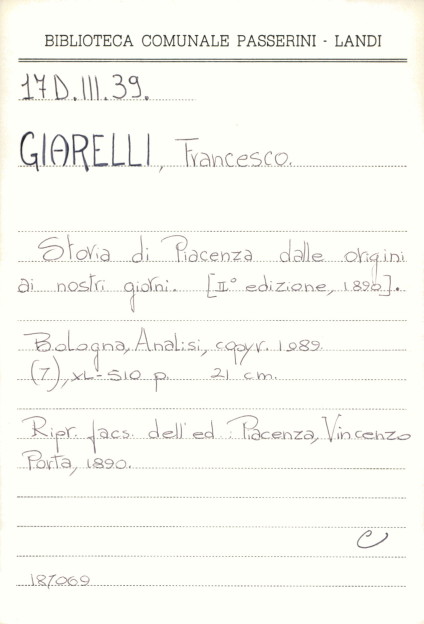 BIBLIOTECA COMUNALE PASSERINI - LANDI
17D.III.39.
GIARELLI, Francesco.
Storia di Piacenza dalle origini
ai nostri giorni. [II° edizione, 1890].
Bologna, Analisi, copyr. 1989.
(7), XL-510 p. 21 cm.
Ripr. facs. dell'ed.: Piacenza, Vincenzo
Porta, 1890.
C
187069